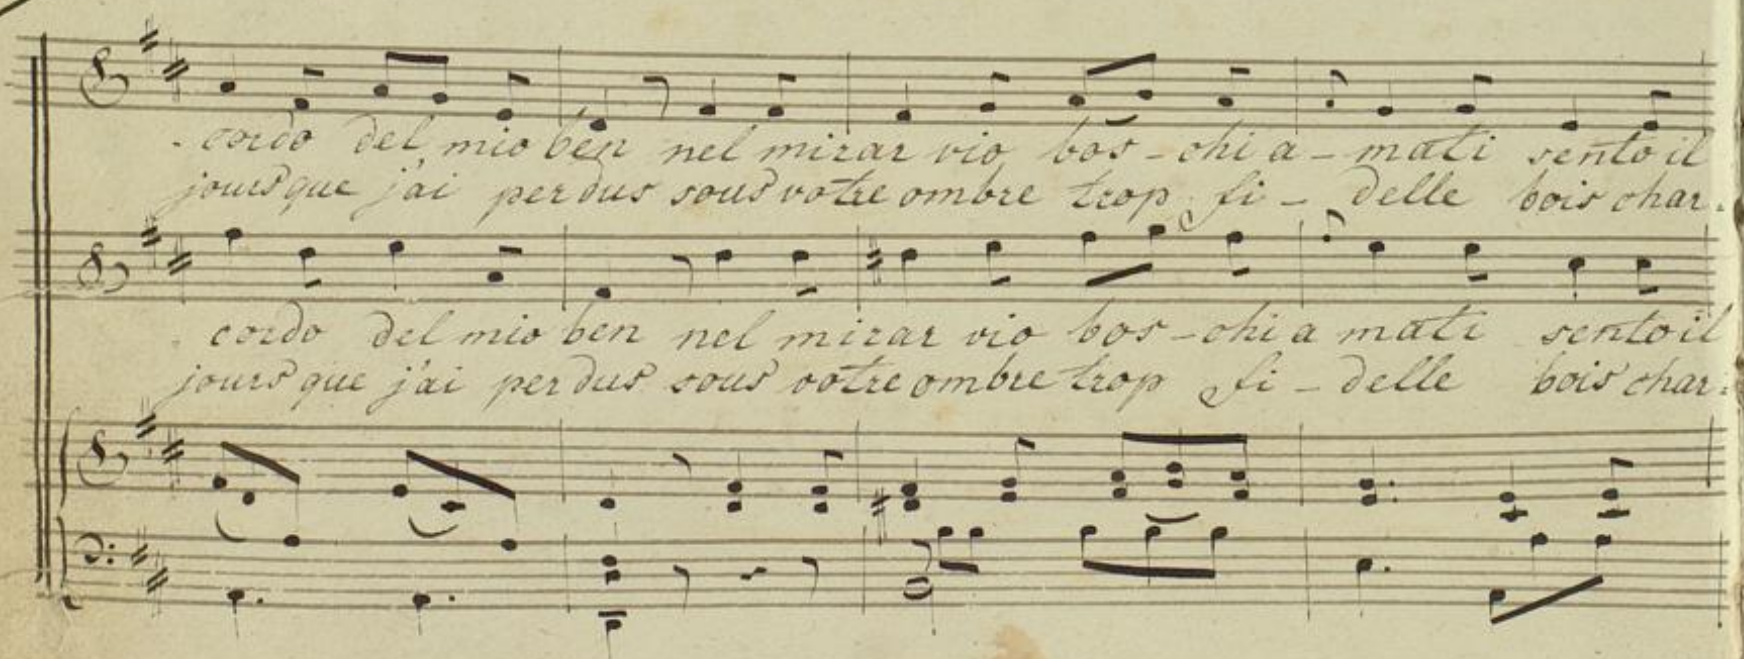 . cordo del mio ben nel mirar vio bos - chi a - mati sento il
jours que j'ai perdus sous votre ombre trop fi - delle bois char .
. cordo del mio ben nel mirar vio bos - chi a mati sento il
jours que j'ai perdus sous votre ombre trop fi - delle bois char :